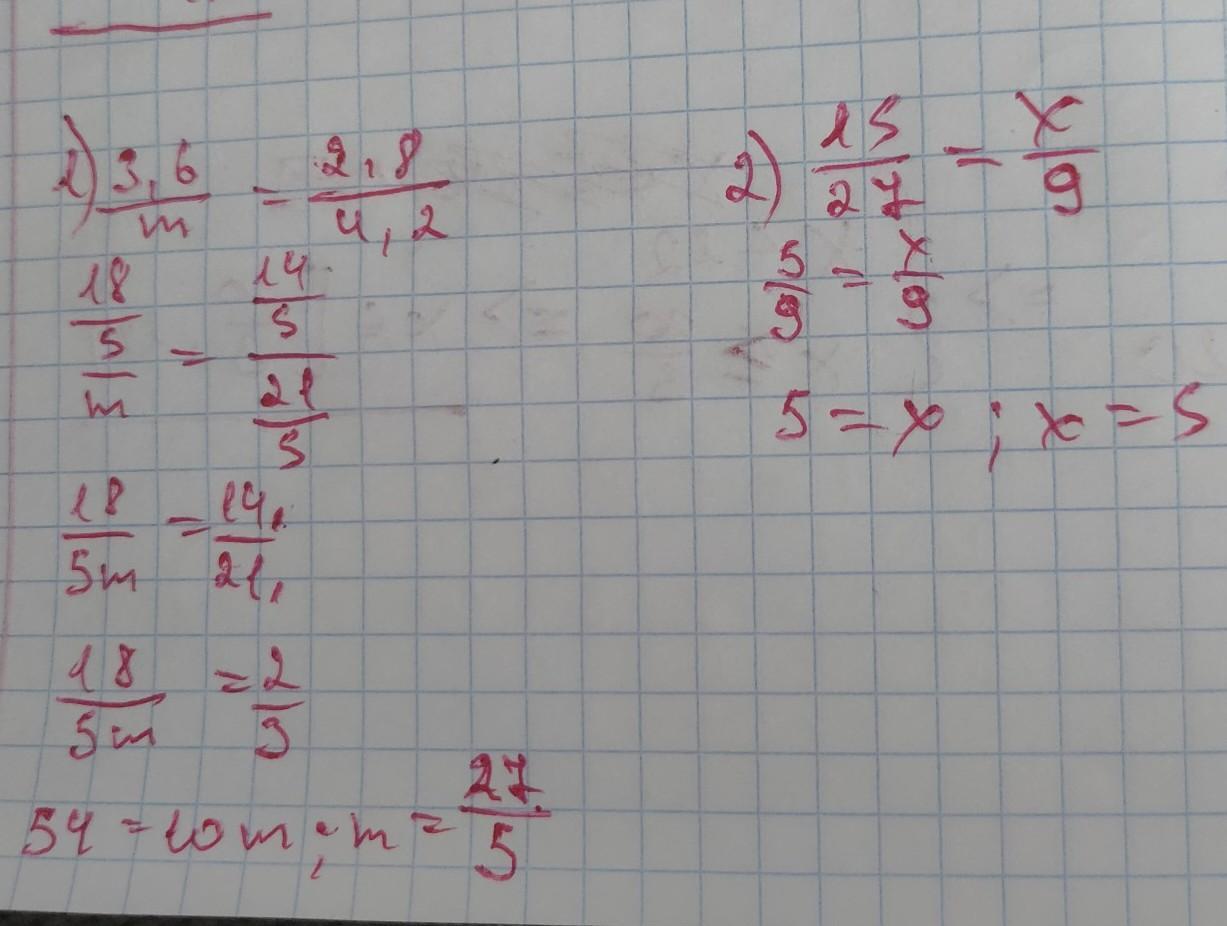 1) 3,6/m = 2,8/4,2
18/5/m = 14/5/21/5
18/5m = 14/21
18/5m = 2/3
54 = 10m; m = 27/5
2) 15/27 = x/9
5/9 = x/9
5 = x ; x = 5